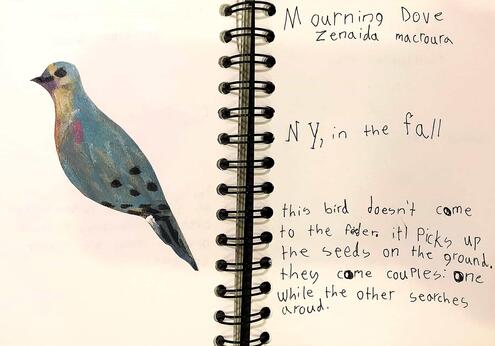 Mourning Dove
Zenaida macroura
NY, in the fall
this bird doesn't come
to the feder. it) Picks up
the seeds on the ground.
they come couples: One
while the other searches
aroud.